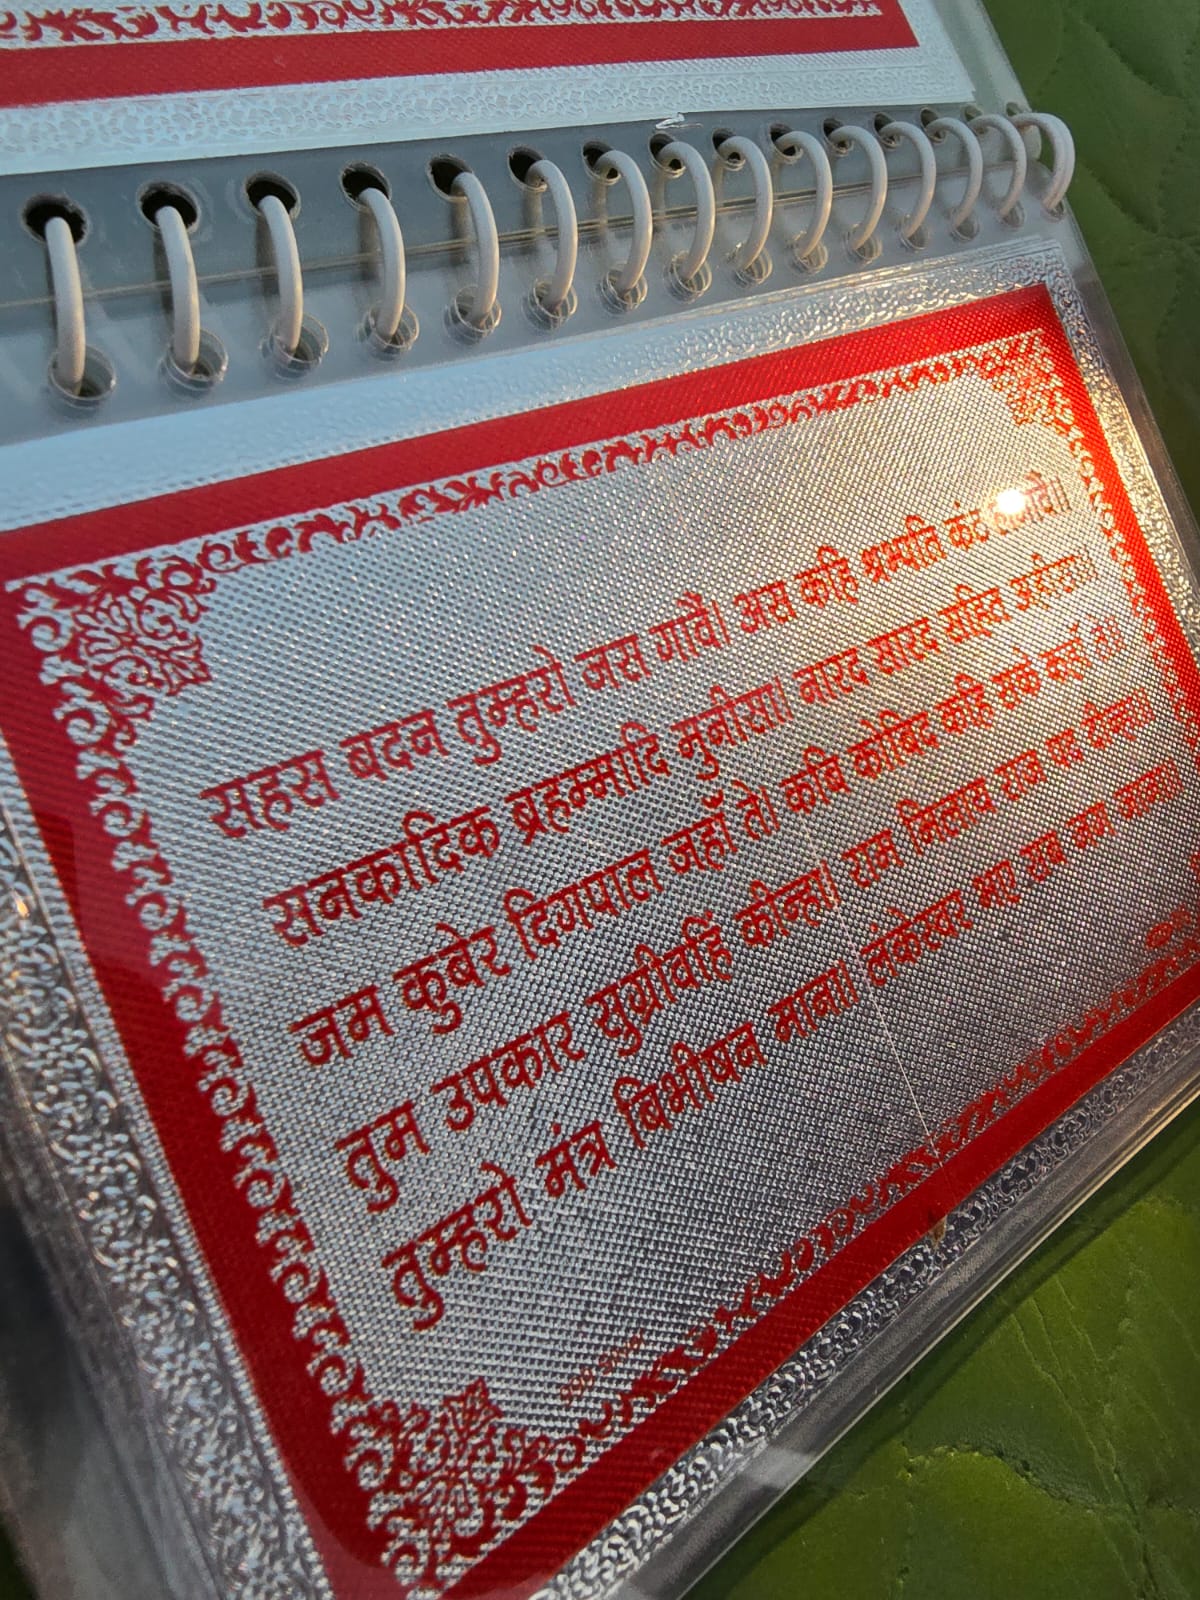 सहस बदन तुम्हरो जस गावै। अस कहि श्रम्पति कंठ
सनकादिक ब्रहम्मादि मुनीसा॥ नारद सारद सहित अहीसा॥
जम कुबेर दिगपाल जहाँ ते। कबि कोबिद कहि सके कहाँ ते॥
तुम उपकार सुग्रीवहिं कीन्हा॥ राम मिलाय राज पद दीन्हा॥
तुम्हरो मंत्र बिभीषन माना॥ लंकेस्वर भए सब जग जाना॥